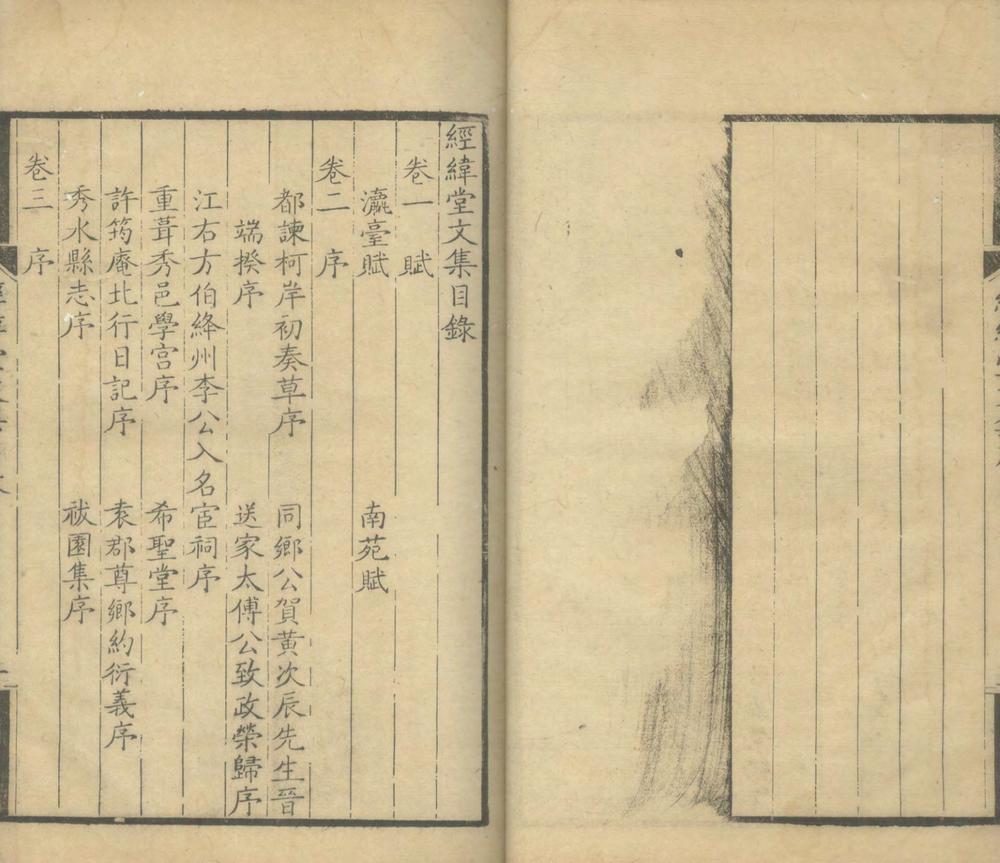 經緯堂文集目錄
卷一　賦
瀛臺賦　南苑賦
卷二　序
都諫柯岸初奏草序　同鄉公賀黃次辰先生晉
端揆序　送家太傅公致政榮歸序
江右方伯絳州李公入名宦祠序
重葺秀邑學宮序　希聖堂序
許筠庵北行日記序　袁郡尊鄉約衍義序
秀水縣志序　祓園集序
卷三　序